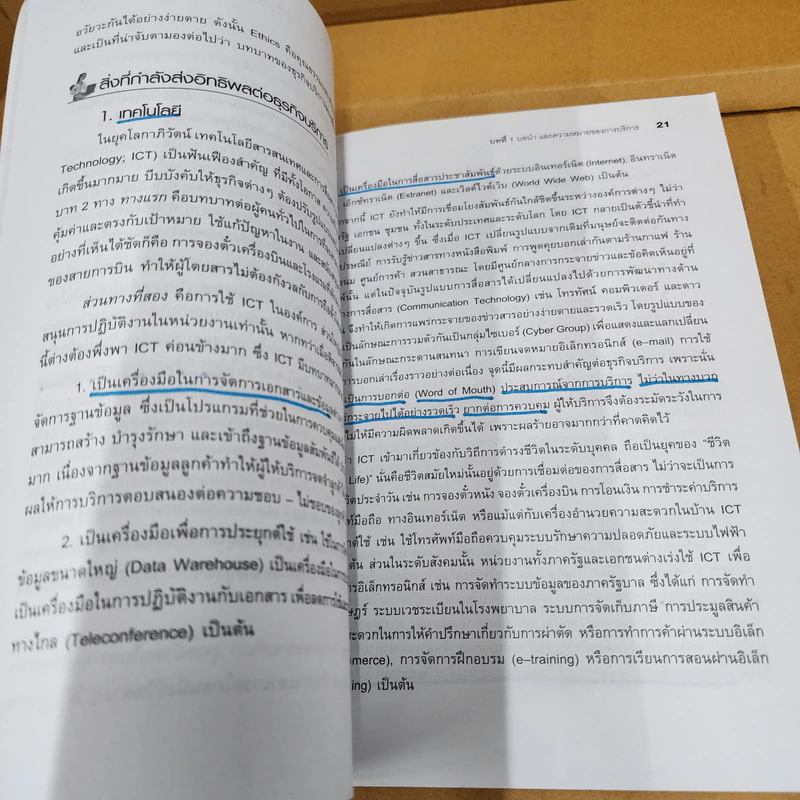 อวัยวะกันได้อย่างง่ายดาย ดังนั้น Ethics คือคุณธรรม
และเป็นที่น่าจับตามองต่อไปว่า บทบาทของธุรกิจบริการ
สิ่งที่กำลังส่งอิทธิพลต่อธุรกิจบริการ
1. เทคโนโลยี
ในยุคโลกาภิวัตน์ เทคโนโลยีสารสนเทศและการสื่อ
Technology; ICT) เป็นฟันเฟืองสำคัญ ที่มีทั้งโอกาส
เกิดขึ้นมากมาย บีบบังคับให้ธุรกิจต่างๆ ต้องปรับรูปแบบ
บาท 2 ทาง ทางแรก คือบทบาทต่อผู้คนทั่วไปในการที่
คุ้มค่าและตรงกับเป้าหมาย ใช้แก้ปัญหาในงาน และ
อย่างที่เห็นได้ชัดก็คือ การจองตั๋วเครื่องบินและโรงแรมที่
ของสายการบิน ทำให้ผู้โดยสารไม่ต้องกังวลกับการถือตั๋ว
ส่วนทางที่สอง คือการใช้ ICT ในองค์การ
สนุนการปฏิบัติงานในหน่วยงานเท่านั้น หากทว่าเมื่อ
นี้ต่างต้องพึ่งพา ICT ค่อนข้างมาก ซึ่ง ICT มีบทบาท
1. เป็นเครื่องมือในการจัดการเอกสารและข้อมูล
จัดการฐานข้อมูล ซึ่งเป็นโปรแกรมที่ช่วยในการควบคุม
สามารถสร้าง บำรุงรักษา และเข้าถึงฐานข้อมูลสัมพันธ์ได้
มาก เนื่องจากฐานข้อมูลลูกค้าทำให้ผู้ให้บริการจดจำลูกค้า
ผลให้การบริการตอบสนองต่อความชอบ – ไม่ชอบของ
2. เป็นเครื่องมือเพื่อการประยุกต์ใช้ เช่น ใช้ใน
ข้อมูลขนาดใหญ่ (Data Warehouse) เป็นเครื่องมือใน
เป็นเครื่องมือในการปฏิบัติงานกับเอกสาร เพื่อลดการใช้
ทางไกล (Teleconference) เป็นต้น
บทที่ 1 บทนำ และความหมายของการบริการ 21
เป็นเครื่องมือในการสื่อสารประชาสัมพันธ์ด้วยระบบอินเทอร์เน็ต (Internet), อินทราเน็ต
เอ็กซ์ทราเน็ต (Extranet) และเวิลด์ไวด์เว็บ (World Wide Web) เป็นต้น
จากนี้ ICT ยังทำให้มีการเชื่อมโยงสัมพันธ์กันใกล้ชิดขึ้นระหว่างองค์การต่างๆ ไม่ว่า
รัฐ เอกชน ชุมชน ทั้งในระดับประเทศและระดับโลก โดย ICT กลายเป็นตัวชี้นำที่ทำ
เปลี่ยนแปลงต่างๆ ขึ้น ซึ่งเมื่อ ICT เปลี่ยนรูปแบบจากเดิมที่มนุษย์จะติดต่อกันทาง
ปรษณีย์ การรับรู้ข่าวสารทางหนังสือพิมพ์ การพูดคุยบอกเล่ากันตามร้านกาแฟ ร้าน
นม ศูนย์การค้า สวนสาธารณะ โดยมีศูนย์กลางการกระจายข่าวและข้อคิดเห็นอยู่ที่
นั้น แต่ในปัจจุบันรูปแบบการสื่อสารได้เปลี่ยนแปลงไปด้วยการพัฒนาทางด้าน
การสื่อสาร (Communication Technology) เช่น โทรทัศน์ คอมพิวเตอร์ และดาว
จึงทำให้เกิดการแพร่กระจายของข่าวสารอย่างง่ายดายและรวดเร็ว โดยรูปแบบของ
เป็นลักษณะการรวมตัวกันเป็นกลุ่มไซเบอร์ (Cyber Group) เพื่อแสดงและแลกเปลี่ยน
กันในลักษณะกระดานสนทนา การเขียนจดหมายอิเล็กทรอนิกส์ (e–mail) การใช้
การบอกเล่าเรื่องราวอย่างต่อเนื่อง จุดนี้มีผลกระทบสำคัญต่อธุรกิจบริการ เพราะนั่น
เป็นการบอกต่อ (Word of Mouth) ประสบการณ์จากการบริการ ไม่ว่าในทางบวก
กระจายไปได้อย่างรวดเร็ว ยากต่อการควบคุม ผู้ให้บริการจึงต้องระมัดระวังในการ
ไม่ให้มีความผิดพลาดเกิดขึ้นได้ เพราะผลร้ายอาจมากกว่าที่คาดคิดไว้
ICT เข้ามาเกี่ยวข้องกับวิถีการดำรงชีวิตในระดับบุคคล ถือเป็นยุคของ “ชีวิต
Life)” นั่นคือชีวิตสมัยใหม่นั้นอยู่ด้วยการเชื่อมต่อของการสื่อสาร ไม่ว่าจะเป็นการ
ชีวิตประจำวัน เช่น การจองตั๋วหนัง จองตั๋วเครื่องบิน การโอนเงิน การชำระค่าบริการ
ท์มือถือ ทางอินเทอร์เน็ต หรือแม้แต่กับเครื่องอำนวยความสะดวกในบ้าน ICT
ใช้ เช่น ใช้โทรศัพท์มือถือควบคุมระบบรักษาความปลอดภัยและระบบไฟฟ้า
ต้น ส่วนในระดับสังคมนั้น หน่วยงานทั้งภาครัฐและเอกชนต่างเร่งใช้ ICT เพื่อ
การอิเล็กทรอนิกส์ เช่น การจัดทำระบบข้อมูลของภาครัฐบาล ซึ่งได้แก่ การจัดทำ
ษฎร์ ระบบเวชระเบียนในโรงพยาบาล ระบบการจัดเก็บภาษี การประมูลสินค้า
ะดวกในการให้คำปรึกษาเกี่ยวกับการผ่าตัด หรือการทำการค้าผ่านระบบอิเล็ก
merce), การจัดการฝึกอบรม (e–training) หรือการเรียนการสอนผ่านอิเล็ก
ing) เป็นต้น